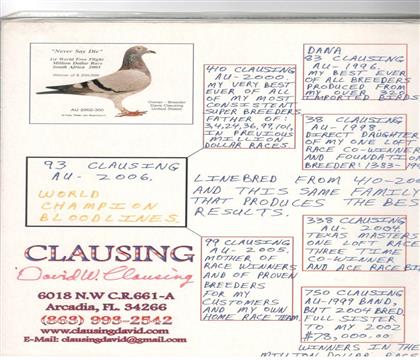 "Never Say Die"
1st World Free Flight
Million Dollar Race
South Africa 2003
Winner of $ 200,000
AU 2002-300
Owner - Breeder
Dave Clausing
United States
93 CLAUSING
AU - 2006.
WORLD
CHAMPION
BLOODLINES.
CLAUSING
David W. Clausing
6018 N.W C.R.661-A
Arcadia, FL. 34266
(863) 993-2542
www.clausingdavid.com
E-Mail: clausingdavid@gmail.com
410 CLAUSING
AU - 2000.
MY VERY BEST
EVER OF ALL
OF MY MOST
CONSISTENT
SUPER BREEDERS
FATHER OF:
34,24,36,99,101,
IN PREVIOUS
MILLION
DOLLAR RACES.
LINEBRED FROM 410-200
AND THIS SAME FAMILY
THAT PRODUCES THE BES
RESULTS.
99 CLAUSING
AU - 2005.
MOTHER OF
RACE WINNERS
AND OF PROVEN
BREEDERS
FOR MY
CUSTOMERS
AND MY OWN
HOME RACE TEAM.
DANA
83 CLAUSING
AU - 1996.
MY BEST EVER
OF ALL BREEDERS
PRODUCED FROM
MY OVER 320
IMPORTED BIRDS
38 CLAUSING
AU - 1998.
DIRECT DAUGHTER
OF MY ONE LOFT
RACE CO-WINNER
AND FOUNDATION
BREEDER: 1383-199
338 CLAUSING
AU - 2004
TEXAS MASTERS
ONE LOFT RACE
THREE TIME
CO-WINNER
AND ACE RACE BI
750 CLAUSING
AU-1999 BAND,
BUT 2004 BRED.
FULL SISTER
TO MY 2002
$78,000.00
WINNERS IN THE
MILLION DOLLAR RAC